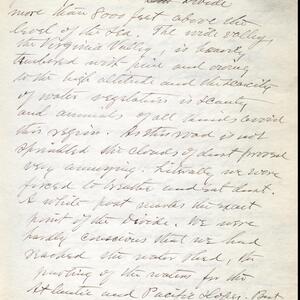 Divide
more than 8000 feet above the
level of the sea. The wide valley,
the Virginia Valley, is heavily
timbered with pine and owing
to the high altitude and the scarcity
of water vegetation is scanty
and animals of all kinds avoid
this region. As this road is not
sprinkled the clouds of dust proved
very annoying. Literally we were
forced to breathe and eat dust.
A white post marks the exact
point of the Divide. We were
hardly conscious that we had
reached the water shed, the
parting of the waters for the
Atlantic and Pacific slopes. But